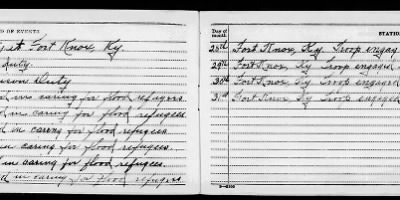 D OF EVENTS
at Fort Knox, Ky
Duty.
Duty
in caring for flood refugees
d in caring for flood refugees.
d in caring for flood refugees
in caring for flood refugees.
in caring for flood refugees.
d in caring for flood refugees.
Day of month
STATION
28th Fort Knox, Ky. Troop engag
29th Fort Knox, Ky Troop engaged
30th Fort Knox, Ky Troop engaged
31st Fort Knox Ky Troop engaged